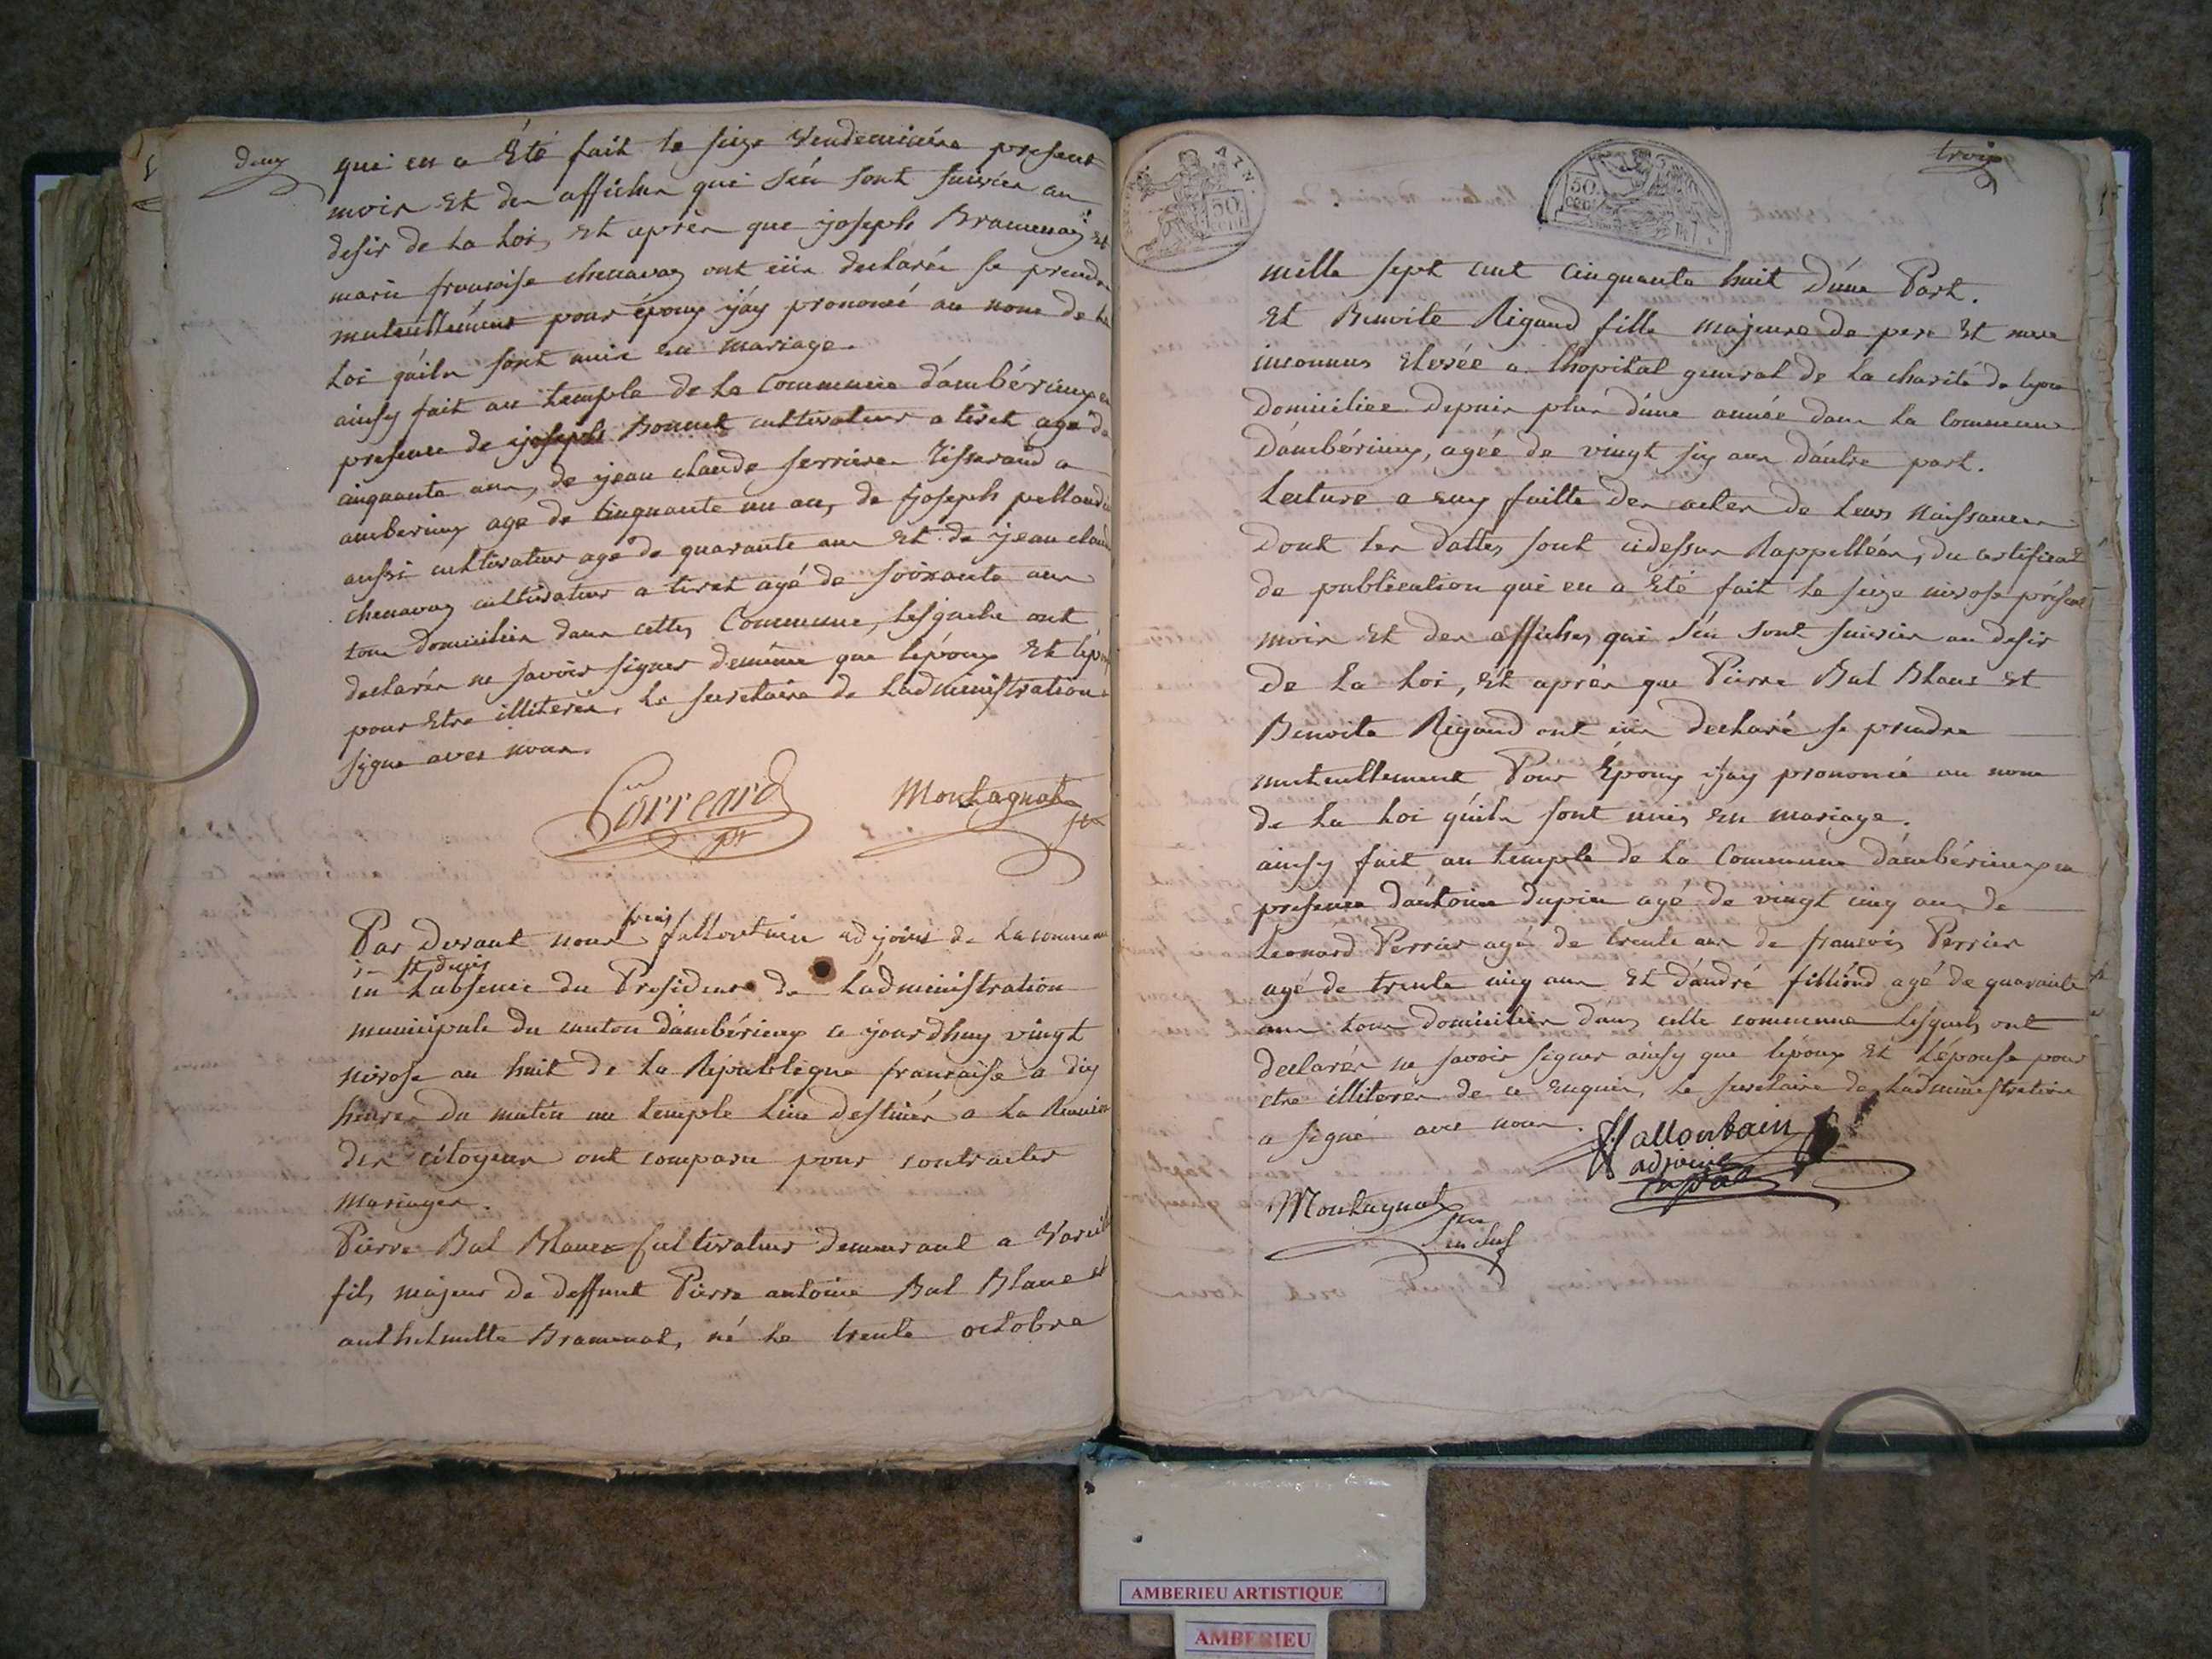 deux
qui en a Été fait le seize Vendemiaire present
mois Et des affiches qui s'én sont suivies au
desir de La Loi, Et après que joseph Bramenas Et
marie francoise chenavas ont icis declarés se prendre
mutuellement pour époux j'áy prononcé au nom de La
Loi qu'ils sont unis En mariage.
ainsy fait au temple de La Commune d'ambérieux en
presence de joseph Bonnet cultivateur a tiret agé de
cinquante ans, de jean claude ferrieres Tisserand a
amberieux age de Cinquante un an, de joseph
aussi cultivateur agé de quarante ans Et de jean claude
chenavas cultivateur a tiret agé de soixante ans
tous domiciliés dans cette Commune, Lesquels ont
declarés ne savoir signer deméme que l'époux Et l'ép
pour Etre illiterés, Le secretaire de L'administration
signe avec nous.
Corrard
pt
Montagnat
Par Devant nous frcois fallontain adjoint de La commune
de St denis
en L'absence du President de L'administration
municipale du canton d'ambérieux ce jourdhuy vingt
nivose an huit de La Republique francaise a dix
heures du matin au temple Lieu destinés a La Reunion
des citoyens ont comparu pour contracter
mariages.
Pierre Bal Blanc cultivateur demeurant a Vareil
fils majeur de deffunt Pierre antoine Bal Blanc et
anthelmette Bramenat, né Le trente octobre
trois
50 CENT
50. CENT
mille sept cent cinquante huit D'une Part.
Et Benoite Rigaud fille majeure de pere Et mere
inconnus Elevée a L'hopital general de La charité de Lyon
domiciliee depuis plus d'une année dans La Commune
D'ambérieux, agée de vingt six ans d'autre part.
Lecture a Eux faitte des actes de Leurs Naissances
Dont Les dattes sont cidessus Rappellées, du certificat
de publication qui en a Eté fait Le seize nivose présent
mois Et des affiches qui s'én sont suivies au desir
de La Loi, Et après que Pierre Bal Blanc Et
Benoite Rigaud ont icis declaré se prendre
mutuellement Pour Époux j'ay prononcé au nom
de La Loi qu'ils sont unis En mariage.
ainsy fait au temple de La Commune d'ambérieux en
presence d'antoine dupin agé de vingt cinq ans de
Leonard Perrier agé de trente ans de francois Perrier
agé de trente cinq ans Et d'andré filliond agé de quarante
ans tous domiciliés dans cette commune Lesquels ont
declarés ne savoir signer ainsy que l'époux Et L'épouse pour
etre illiterés de ce Enquis, Le secretaire de L'administration
a signé avec nous.
fallontain
adjoint
Montagnat
sre
en chef
AMBERIEU ARTISTIQUE
AMBERIEU